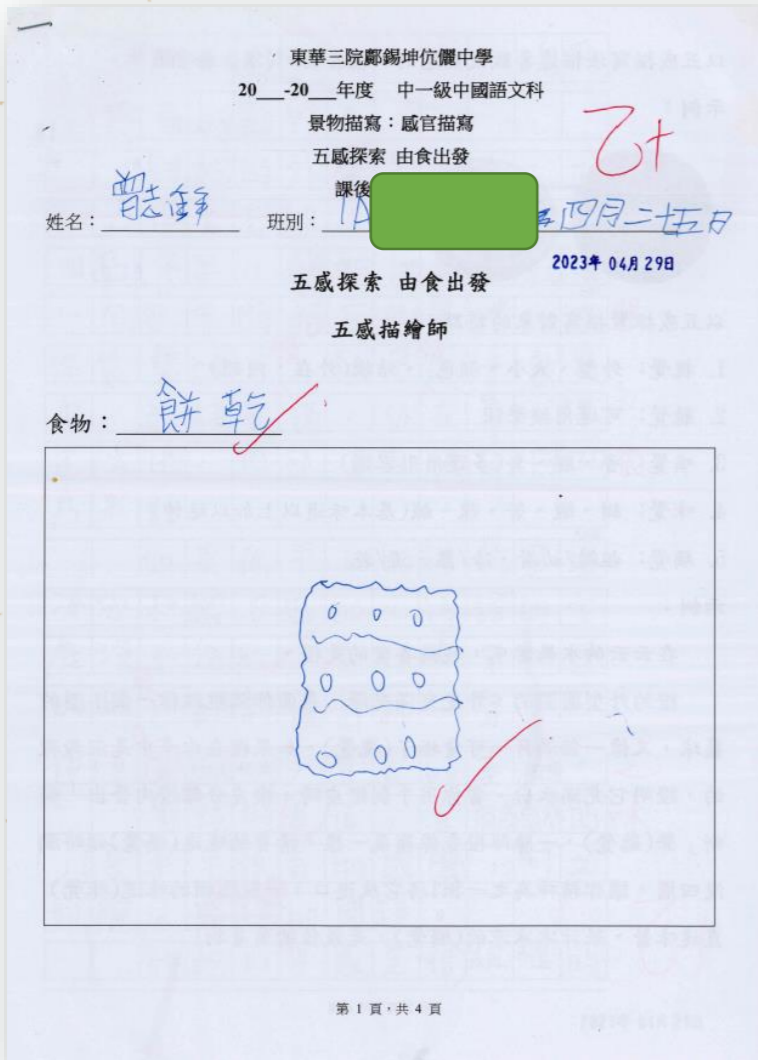 東華三院鄺錫坤伉儷中學
20___-20___年度 中一級中國語文科
景物描寫：感官描寫
五感探索 由食出發
乙+
課後
姓名：曾志鋒 班別：1A 四月二十五日
2023年 04月 29日
五感探索 由食出發
五感描繪師
食物：餅乾
第 1 頁，共 4 頁